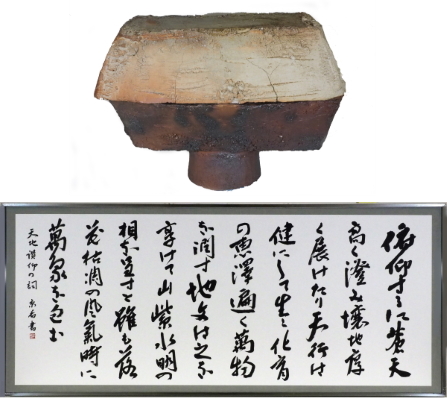 俯仰するに蒼天
高く澄み壌地厚
く展けたり天行は
健にして生々化育
の恵澤遍く萬物
を潤す地母は之を
享けて山紫水明の
相を呈すと雖も落
花枯凋の風氣時に
萬象を
天地讃仰の詞 京石書